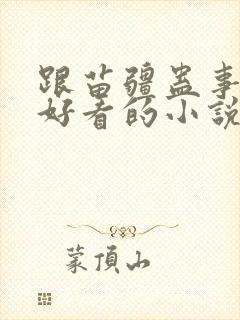 跟苗疆蛊事
好看的小説
蒙頂山